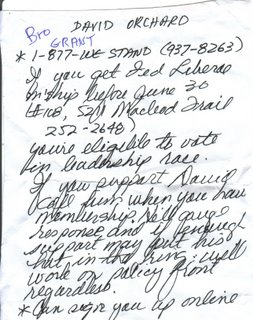 DAVID ORCHARD
Bro
GRANT
* 1-877-WE STAND (937-8263)
If you get Fed Liberal
m'ship before June 30
(#108, 5211 Macleod Trail
252-2648)
you're eligible to vote
in leadership race.
If you support David
call him when you have
membership. He'll gauge
response and if enough
support may put his
hat in the ring; will
work on policy front
regardless.
* Can sign you up online